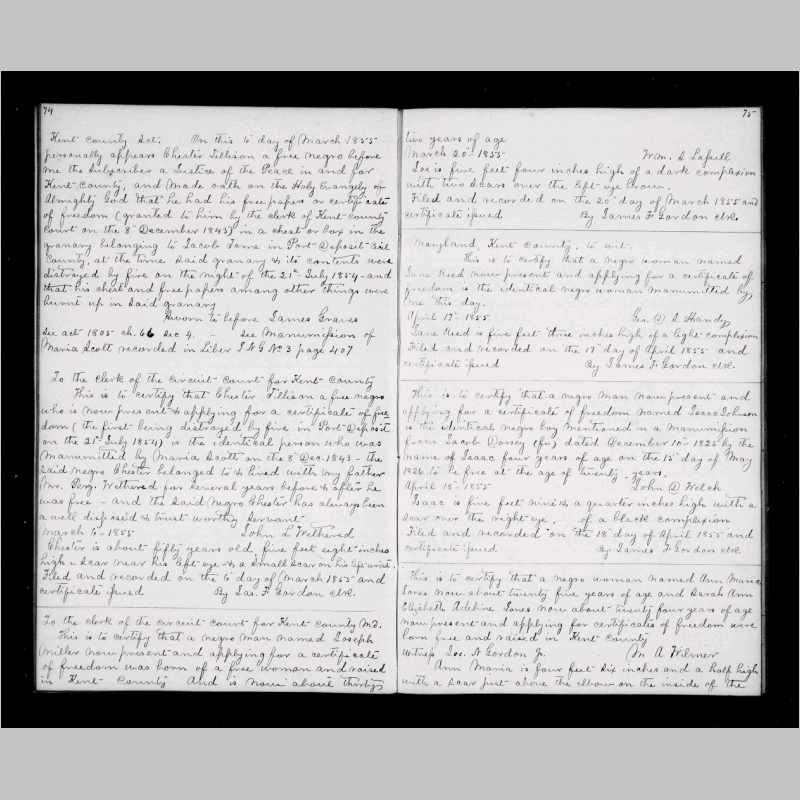 74
Kent County Sct. On this 6" day of March 1855
personally appears Chester Tillison a free negro before
me the subscriber a Justice of the Peace in and for
Kent County, and made oath on the Holy Evangely of
Almighty God that he had his free papers or certificate
of freedom (granted to him by the clerk of Kent County
Court on the 8" December 1843) in a chest or box in the
granary belonging to Jacob Tome in Port Deposit Cecil
County, at the time said granary & its contents were
distroyed by fire on the night of the 21st July 1854 - and
that his chest and free papers among other things were
burnt up in said granary
Sworn to before James Graves
See act 1805 ch. 66 sec 4. See Manumission of
Maria Scott recorded in Liber J N G No 3 page 407
To the clerk of the circuit court for Kent County
This is to certify that Chester Tillison a free negro
who is now present & applying for a certificate of free
dom (the first being distroyed by fire in Port Deposit
on the 21st July 1854) is the identical person who was
Manumitted by Maria Scott on the 8" Dec. 1843 - the
said negro Chester belonged to & lived with my father
Mr. Perg. Wethered for several years before & after he
was free - and the said Negro Chester has always been
a well disposed & trust worthy servant
March 6" 1855 John L Wethered
Chester is about fifty years old five feet eight inches
high a scar near his left eye & a small scar on his left wrist.
Filed and recorded on the 6" day of March 1855 and
certificate issued By Jas. F. Gordon clk.
To the clerk of the circuit court for Kent County Md.
This is to certify that a negro man named Joseph
Miller now present and applying for a certificate
of freedom was born of a free woman and raised
in Kent County And is now about thirty
75
two years of age
March 20" 1855 Wm. S Lassell
Joe is five feet four inches high of a dark complexion
with two scars over the left eye brow.
Filed and recorded on the 20" day of March 1855 and
certificate issued By James F Gordon clk.
Maryland, Kent County, to wit:
This is to certify that a negro woman named
Jane Reed now present and applying for a certificate of
freedom is the identical negro woman manumitted by
me this day.
April 17" 1855 Geo. D. S. Handy
Jane Reed is five feet three inches high of a light complexion
Filed and recorded on the 17" day of April 1855 and
certificate issued By James F. Gordon clk.
This is to certify that a negro man now present and
applying for a certificate of freedom named Isaac Johnson
is the identical negro boy mentioned in a manumission
from Jacob Dorsey (fn) dated December 10" 1825 by the
name of Isaac four years of age on the 15" day of May
1826 to be free at the age of twenty years.
April 18" 1855 John D Welch
Isaac is five feet nine & a quarter inches high with a
scar over the right eye. of a black complexion
Filed and recorded on the 18" day of April 1855 and
certificate issued By James F Gordon clk
This is to certify that a negro woman named Ann Maria
Jones now about twenty five years of age and Sarah Ann
Elizabeth Adeline Jones now about twenty four years of age
now present and applying for certificates of freedom were
born free and raised in Kent County
Witness Jos. N Gordon Jr. M. A Wilmer
Ann Maria is four feet six inches and a half high
with a scar just above the elbow on the inside of the